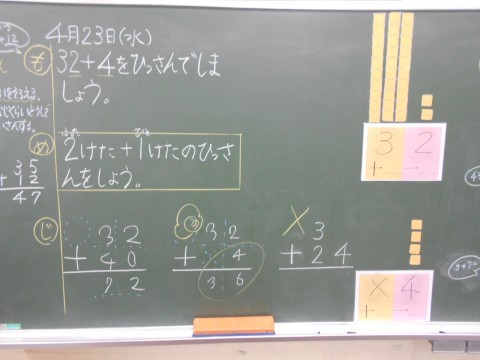 4月23日(水)
も
32+4をひっさんでしま
しょう。
め
2けた+1けたのひっさ
んをしよう。
じ
32
+40
72
32
+4
36
×3
+24
35
+12
47
32
十一
×4
十一